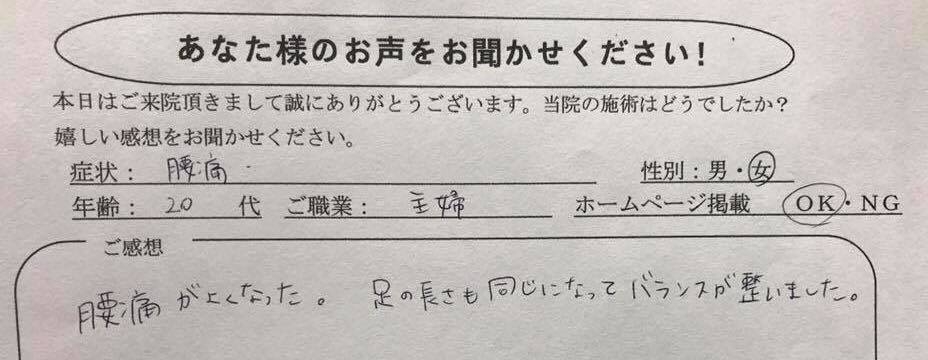 あなた様のお声をお聞かせください!
本日はご来院頂きまして誠にありがとうございます。当院の施術はどうでしたか?
嬉しい感想をお聞かせください。
症状: 腰痛 性別:男・女
年齢: 20 代 ご職業: 主婦 ホームページ掲載 OK・NG
ご感想
腰痛がよくなった。 足の長さも同じになってバランスが整いました。